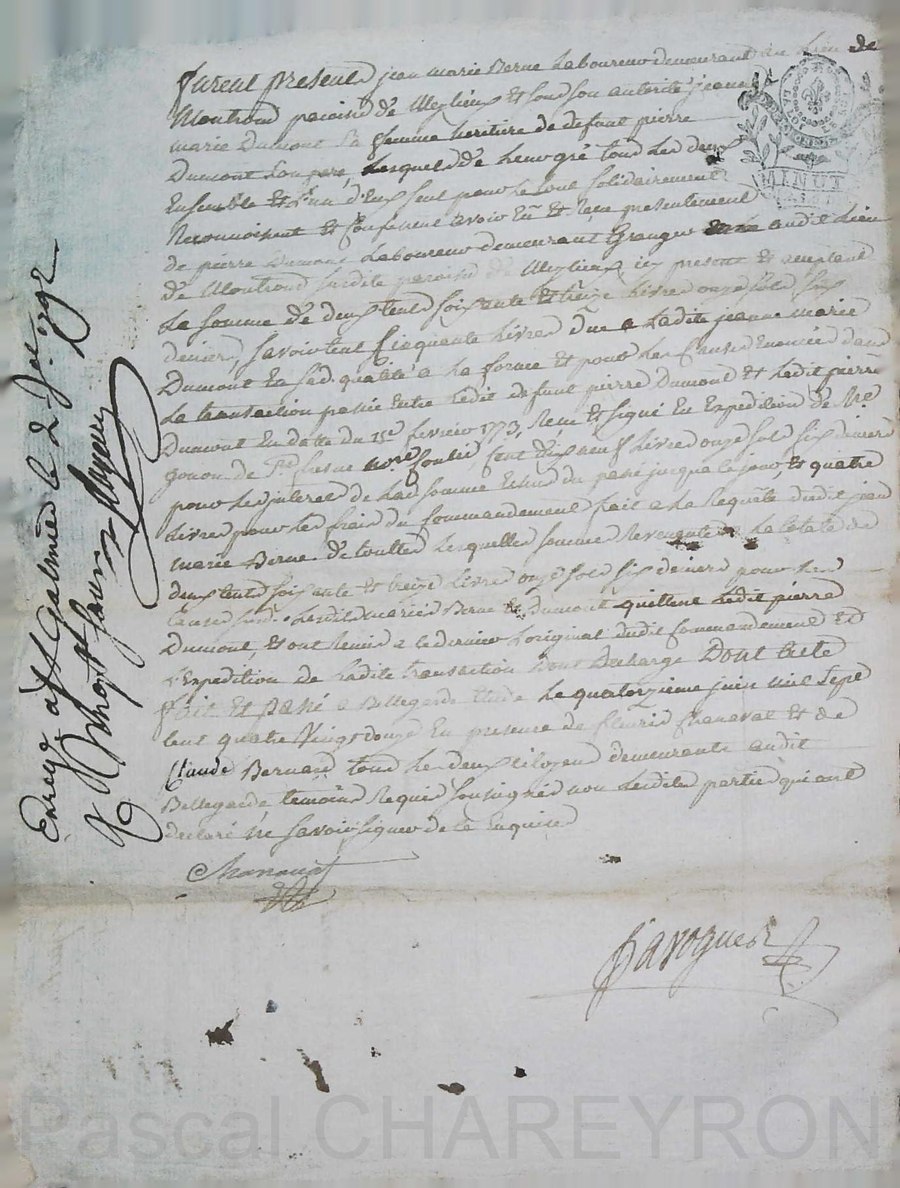 furent presents jean marie Berne Laboureur demeurant au Lieu de
Montrond paroisse de Meylieux et sous son autorité jeanne
marie Dumont sa femme heritiere de defunt pierre
Dumont son pere, Lesquels de Leur gré tous Les deux
Ensemble et L'un d'Eux seul pour le tout solidairement
Reconnoissent et Confessent avoir Eu et Reçu presentement
de pierre Dumont Laboureur demeurant Granger audit Lieu
de Montrond susdite paroisse de Meylieux icy present et acceptant
La somme de deux Cent soixante et treize Livres onze sols six
deniers, savoir Cent Cinquante Livres düe a Ladite jeanne marie
Dumont En sad. qualité a La forme et pour Les Causes Enoncées dans
La transaction passée Entre Ledit defunt pierre Dumont et Ledit pierre
Dumont En datte du 15e fevrier 1773, Reçue et signé En Expedition de Me
gonon de nore Cent dix neuf Livres onze sols six deniers
pour Les jnterets de Lad. somme Echus du passé jusqua ce jour, et quatre
Livres pour Les frais du Commandement fait a La Requête dudit jean
marie Berne de touttes Lesquelles sommes Revenantes a La totale de
deux Cent soixante et treize Livres onze sols six deniers pour Les
Causes Lesdits mariés Berne et Dumont quittent Ledit pierre
Dumont, et ont Remis a ce dernier L'original dudit Commandement Et
L'Expedition de Ladite transaction Dont Decharge Dont acte
fait et passé a Bellegarde Etude Le quatorzieme juin mil sept
Cent quatre Vingt douze En presence de fleurie Chanavat et de
Claude Bernard tous Les deux citoyens demeurants audit
Bellegarde, temoins Requis soussignés non Lesdites parties qui ont
declaré ne savoir signer de ce Enquises
Chanavat
Javogues
Enregé a St Galmier le 2 1792
MINUT
Pascal CHAREYRON